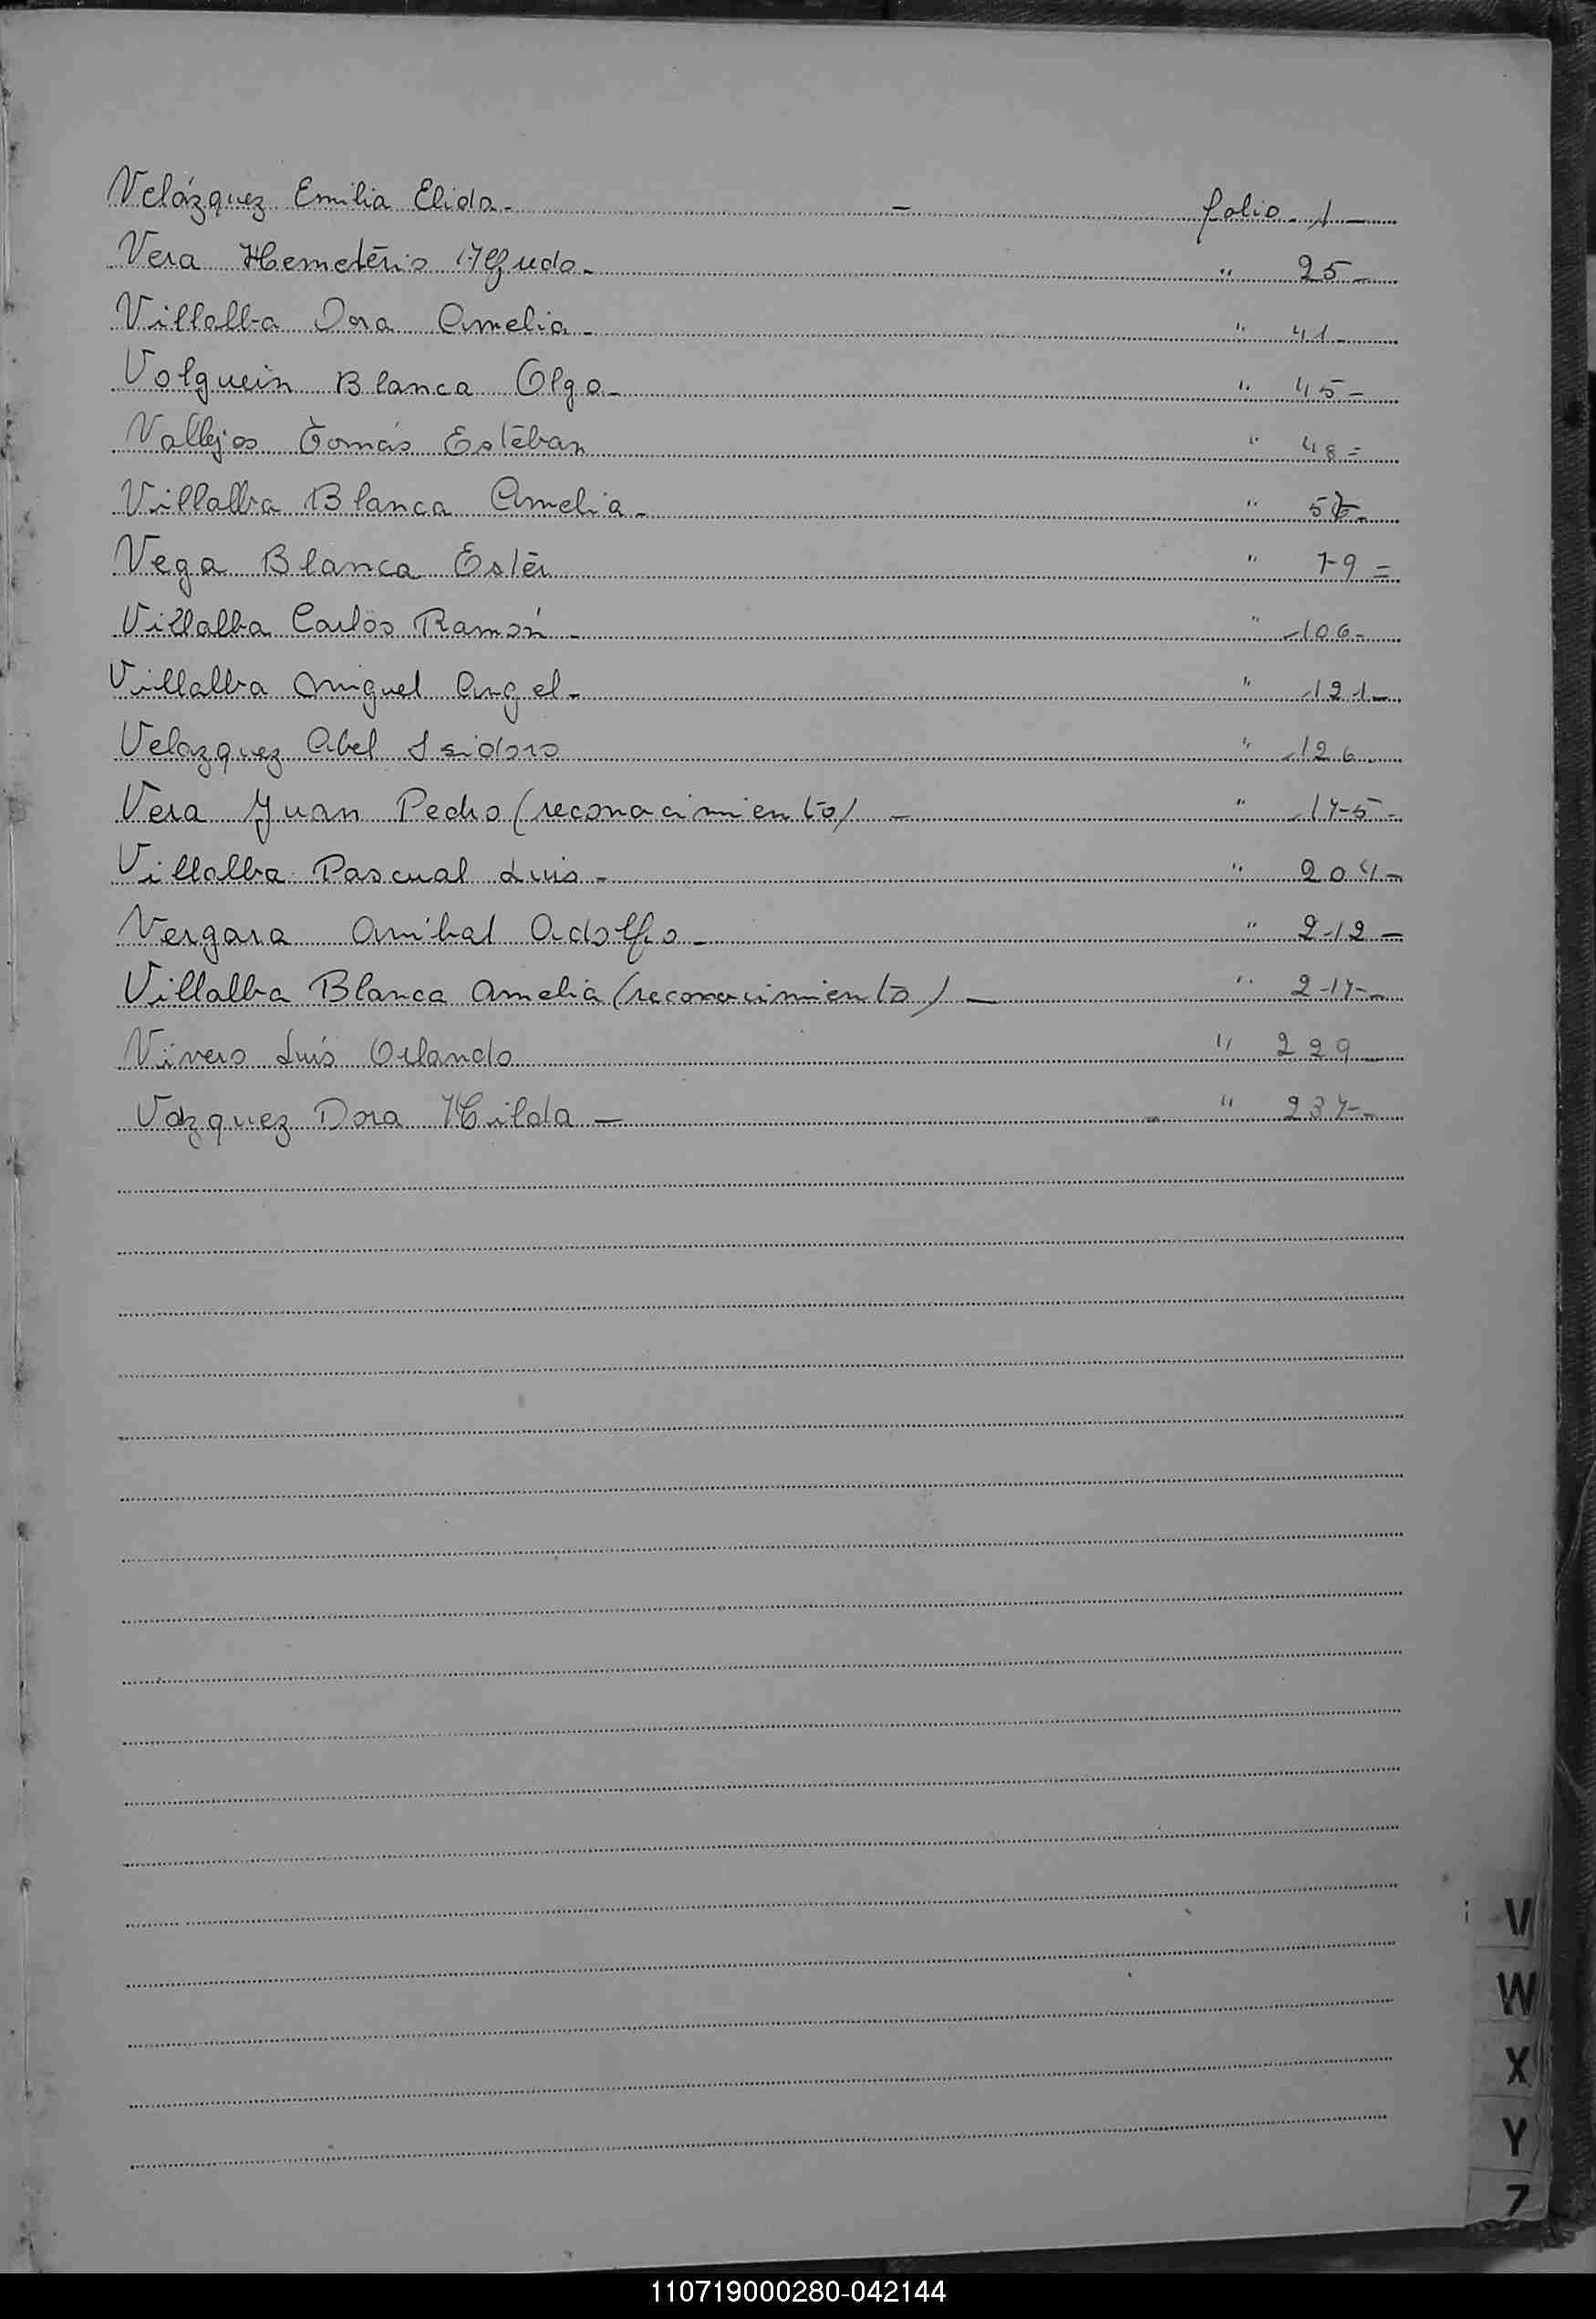 Velázquez Emilia Elida - - folio 1 -
Vera Hemetério Alfredo - " 25 -
Villalba Dora Amelia - " 41 -
Volguein Blanca Olga - " 45 -
Vallejos Tomás Estéban " 48 =
Villalba Blanca Amelia - " 56 -
Vega Blanca Estér " 79 =
Villalba Carlos Ramón - " 106 -
Villalba Miguel Angel - " 121 -
Velazquez Abel Isidoro " 126
Vera Juan Pedro (reconocimiento) - " 175 -
Villalba Pascual Luis - " 204 -
Vergara Aníbal Adolfo - " 212 -
Villalba Blanca Amelia (reconocimiento) - " 217 -
Vivero Luís Orlando " 229 -
Vázquez Dora Hilda - - " 237 -
V
W
X
Y
Z
110719000280-042144